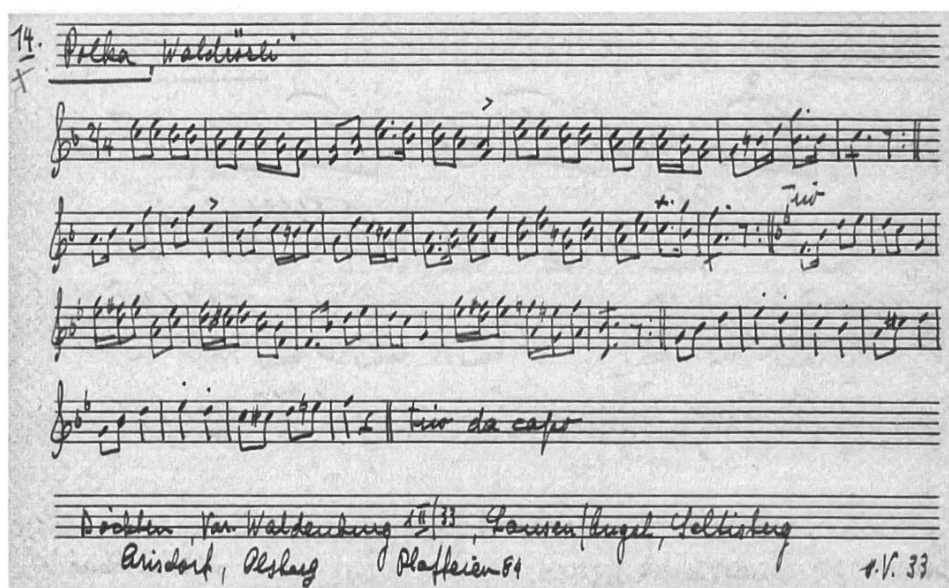 14. Polka „Waldrösli"
Trio
trio da capo
Böckten, Var. Waldenburg II/33, Lausen/Angst, Seltisberg
Arisdorf, Olsberg Plaffeien 84 1.V. 33